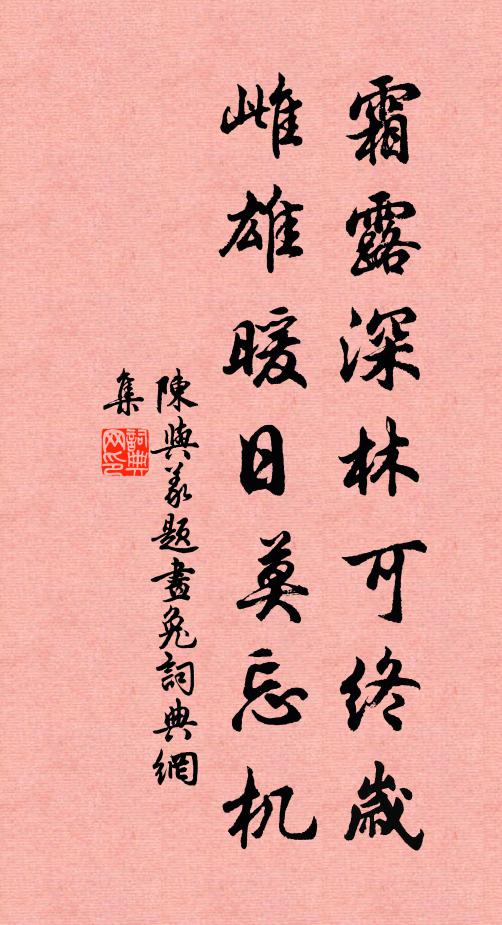 霜露深林可终歲
雌雄暖日莫忘机
陳與義題畫兔詞典網
集
詞典
网印